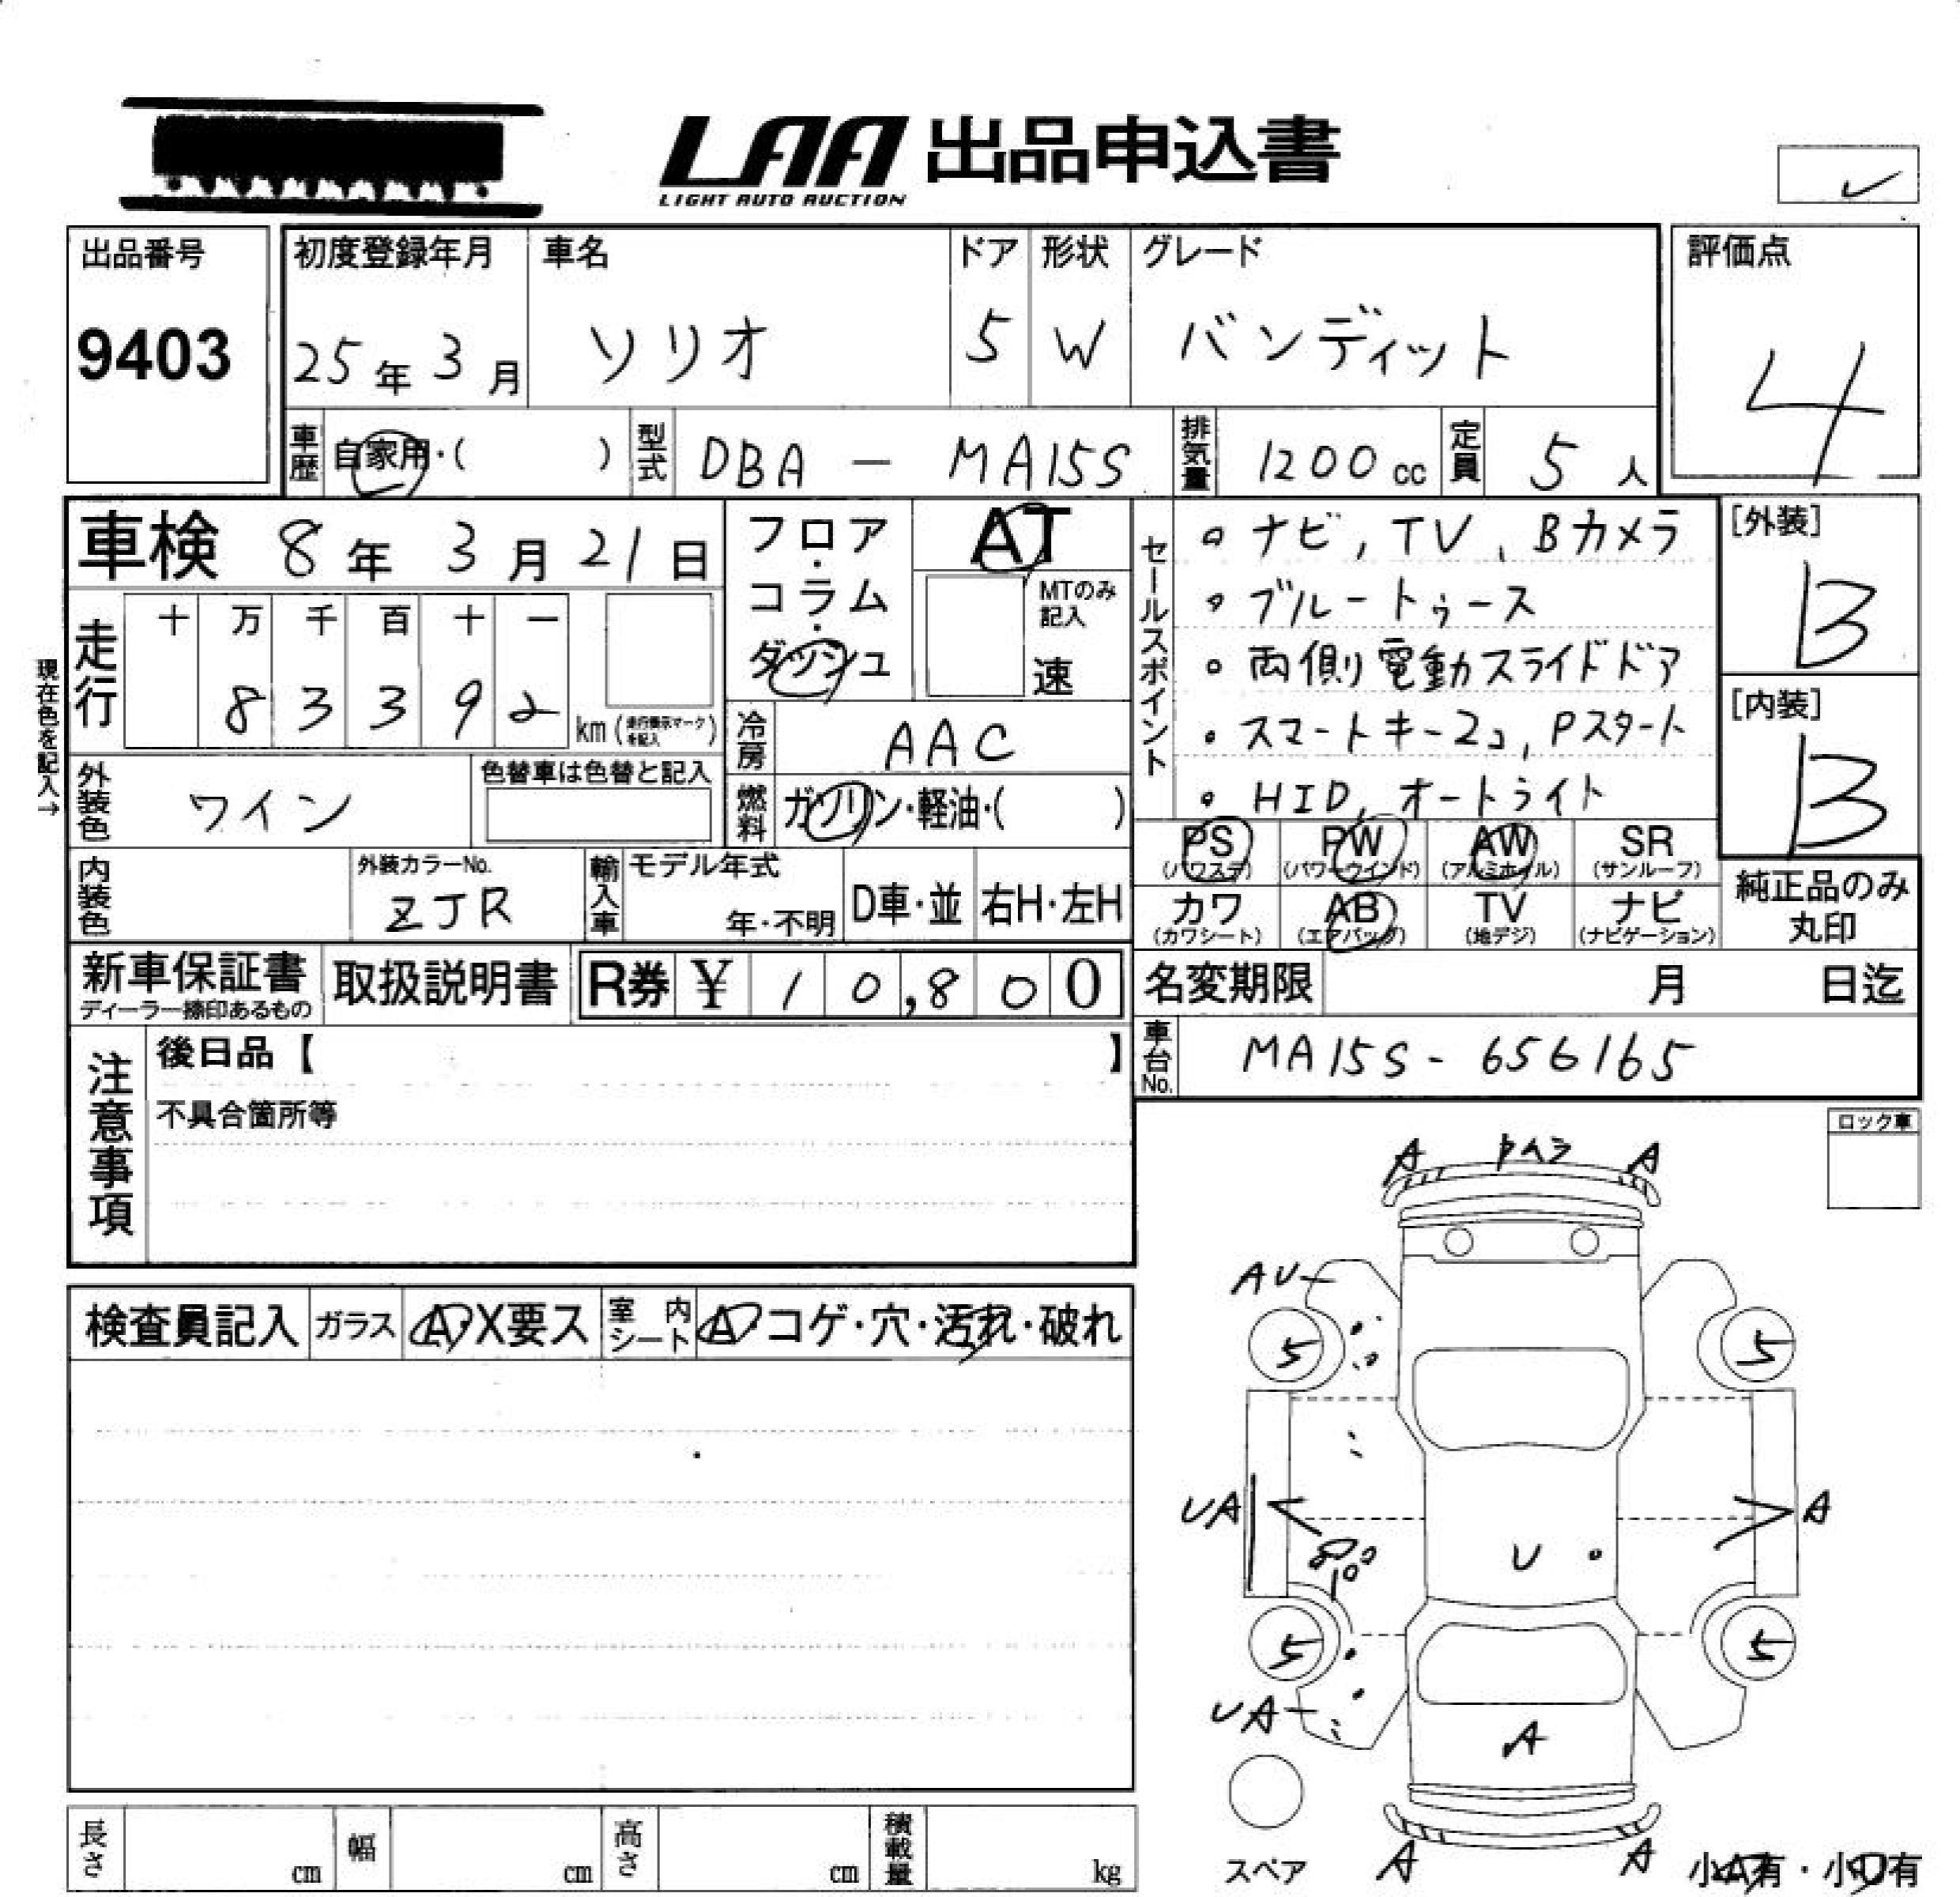 LAA 出品申込書
LIGHT AUTO AUCTION
出品番号
9403
初度登録年月 車名 ドア 形状 グレード
25年 3月 ソリオ 5 W バンディット
評価点
4
車歴 自家用・( ) 型式 DBA - MA15S 排気量 1200cc 定員 5人
車検 8年 3月 21日
フロア・コラム・ダッシュ
AT
MTのみ記入
速
走行 十 万 千 百 十 一
8 3 3 9 2 km (走行表示マークを記入)
現在色を記入→
冷房 AAC
外装色 ワイン 色替車は色替と記入
燃料 ガソリン・軽油・( )
内装色 外装カラーNo.
ZJR
輸入車 モデル年式
年・不明 D車・並 右H・左H
セールスポイント
・ナビ, TV, Bカメラ
・ブルートゥース
・両側電動スライドドア
・スマートキー2コ, Pスタート
・HID, オートライト
[外装]
B
[内装]
B
PS PW AW SR
(パワステ) (パワーウインド) (アルミホイル) (サンルーフ)
カワ AB TV ナビ
(カワシート) (エアバッグ) (地デジ) (ナビゲーション)
純正品のみ
丸印
新車保証書 取扱説明書 R券 ¥ 10,800
ディーラー捺印あるもの
名変期限 月 日迄
車台No. MA15S-656165
注意事項
後日品【 】
不具合箇所等
ロック車
検査員記入 ガラス A・X要ス 室内シート A・コゲ・穴・汚れ・破れ
A A
AU
5 5
UA A
U
5 5
UA
A
A A
スペア
小A有・小U有
長さ cm 幅 cm 高さ cm 積載量 kg